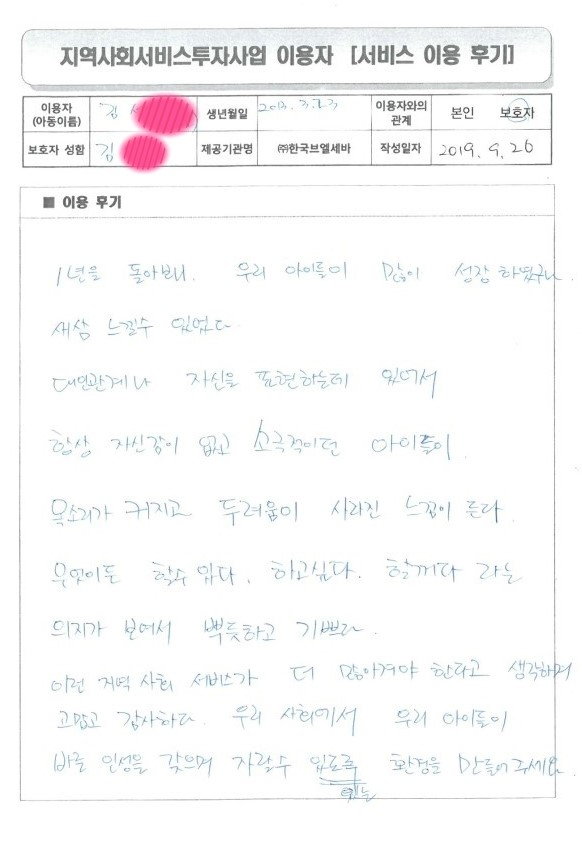 지역사회서비스투자사업 이용자 [서비스 이용 후기]
이용자 (아동이름) 김 생년월일 2013. 이용자와의 관계 본인 보호자
보호자 성함 김 제공기관명 ㈜한국브엘세바 작성일자 2019. 9. 26
■ 이용 후기
1년을 돌아보니. 우리 아이들이 많이 성장 하였구나
새삼 느낄수 있었다
대인관계나 자신을 표현하는데 있어서
항상 자신감이 없고 소극적이던 아이들이
목소리가 커지고 두려움이 사라진 느낌이 든다
무엇이든 할수 있다, 하고싶다. 할꺼다 라는
의지가 보여서 뿌듯하고 기쁘다.
이런 지역 사회 서비스가 더 많아져야 한다고 생각하며
고맙고 감사하다. 우리 사회에서 우리 아이들이
바른 인성을 갖으며 자랄수 있도록 환경을 만들어 주세요
있는